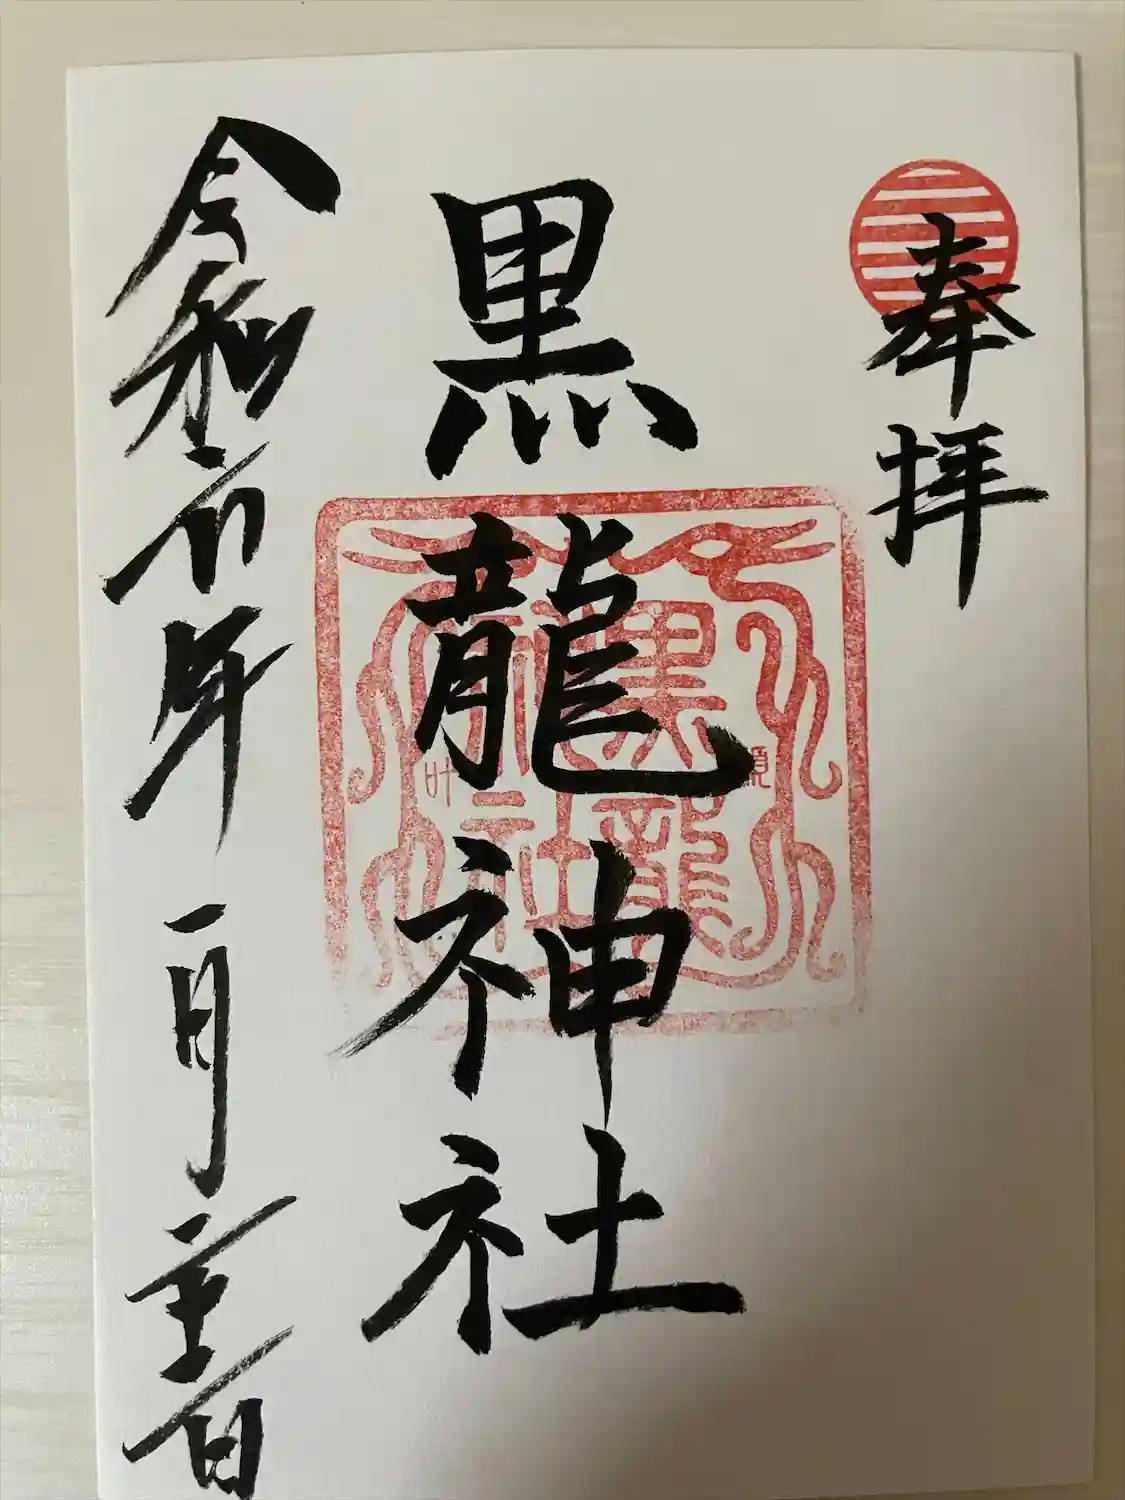 奉拝
黒龍神社
黒龍
神社
叶
令和六年一月
日